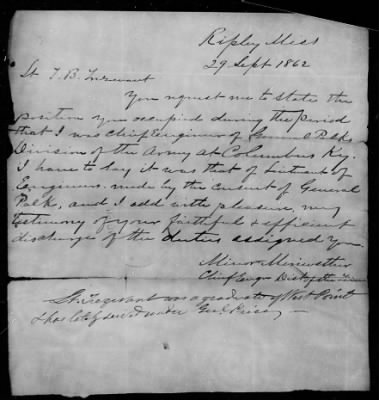 Ripley Miss
29 Sept 1862
Lt T. B. Trezevant
You request me to state the
position you occupied during the period
that I was chief engineer of General Polks
Division of the Army at Columbus Ky.
I have to say it was that of Lieutenant of
Engineers. made by the consent of General
Polk, and I add with pleasure, my
testimony of your faithful & efficient
discharge of the duties assigned you.
Minor Meriwether
Chief Engr Dist of the
Lt Trezevant was a graduate of West Point
& has lately served under Genl Price